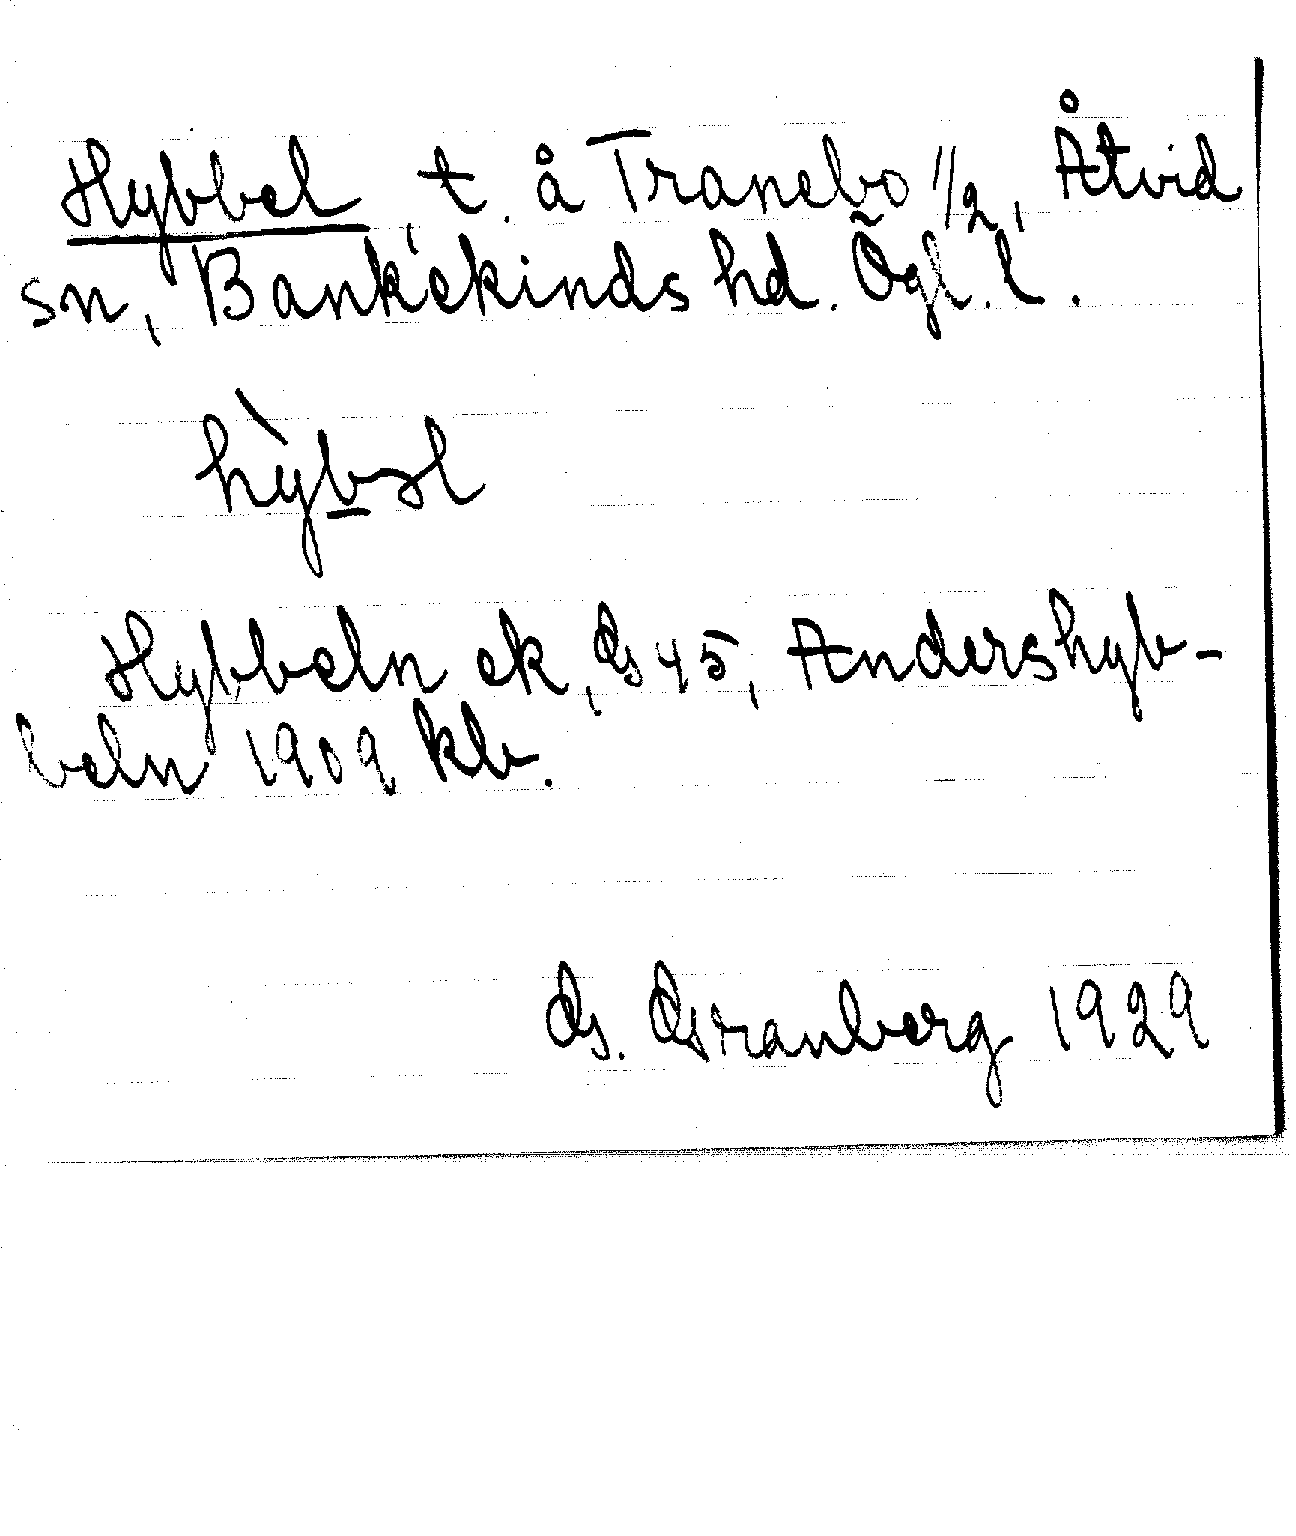 Hybbel, t. å Tranebo 1/2, Åtvid
sn, Bankekinds hd. Ögl. l.
hỳb̲əl
Hybbeln ek, G 45, Andershyb-
beln 1909 kb.
G. Granberg 1929